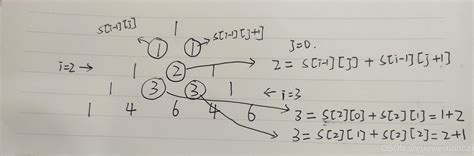 S[i-1][j] 1
1 1 S[i-1][j+1] j=0.
i=2 → 1 2 1 2 = S[i-1][j] + S[i-1][j+1]
1 3 3 1 ← i=3
1 4 6 4 6 3 = S[2][0] + S[2][1] = 1+2
3 = S[2][1] + S[2][2] = 2+1